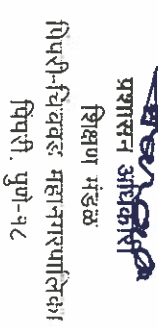 प्रशासन अधिकारी
शिक्षण मंडळ
पिंपरी-चिंचवड महानगरपालिका
पिंपरी, पुणे-१८